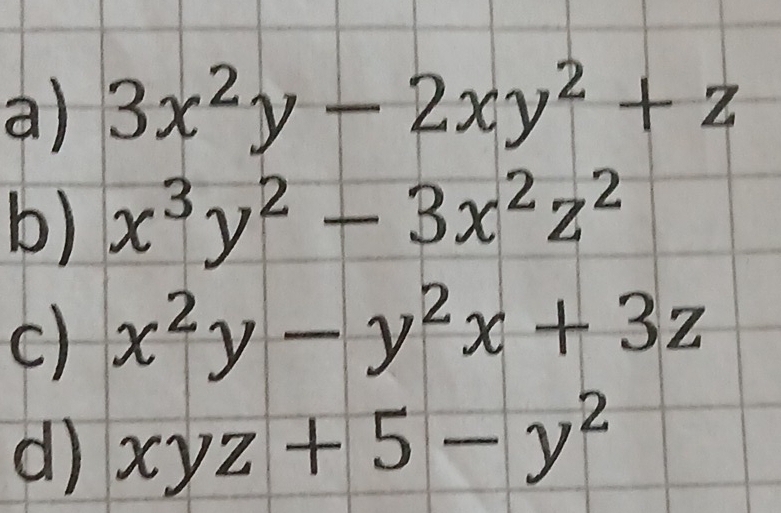 a) 3x²y − 2xy² + z
b) x³y² − 3x²z²
c) x²y − y²x + 3z
d) xyz + 5 − y²